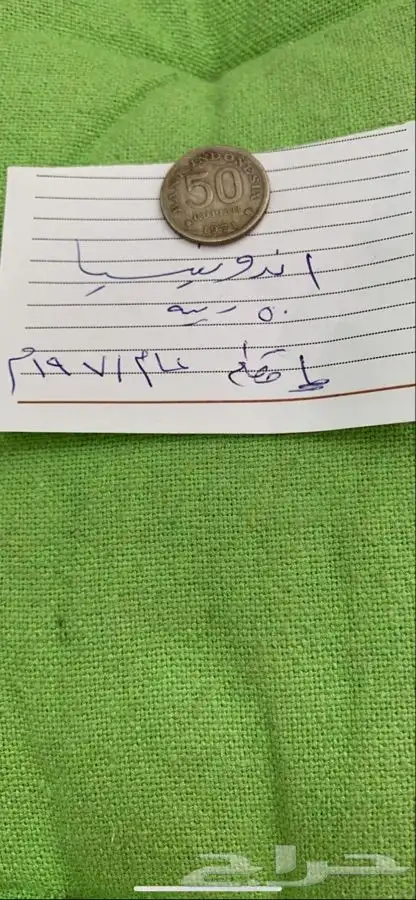 BANK INDONESIA
50
RUPIAH
1971
اندونيسيا
٥٠ ربيه
عام ١٩٧١م
حراج